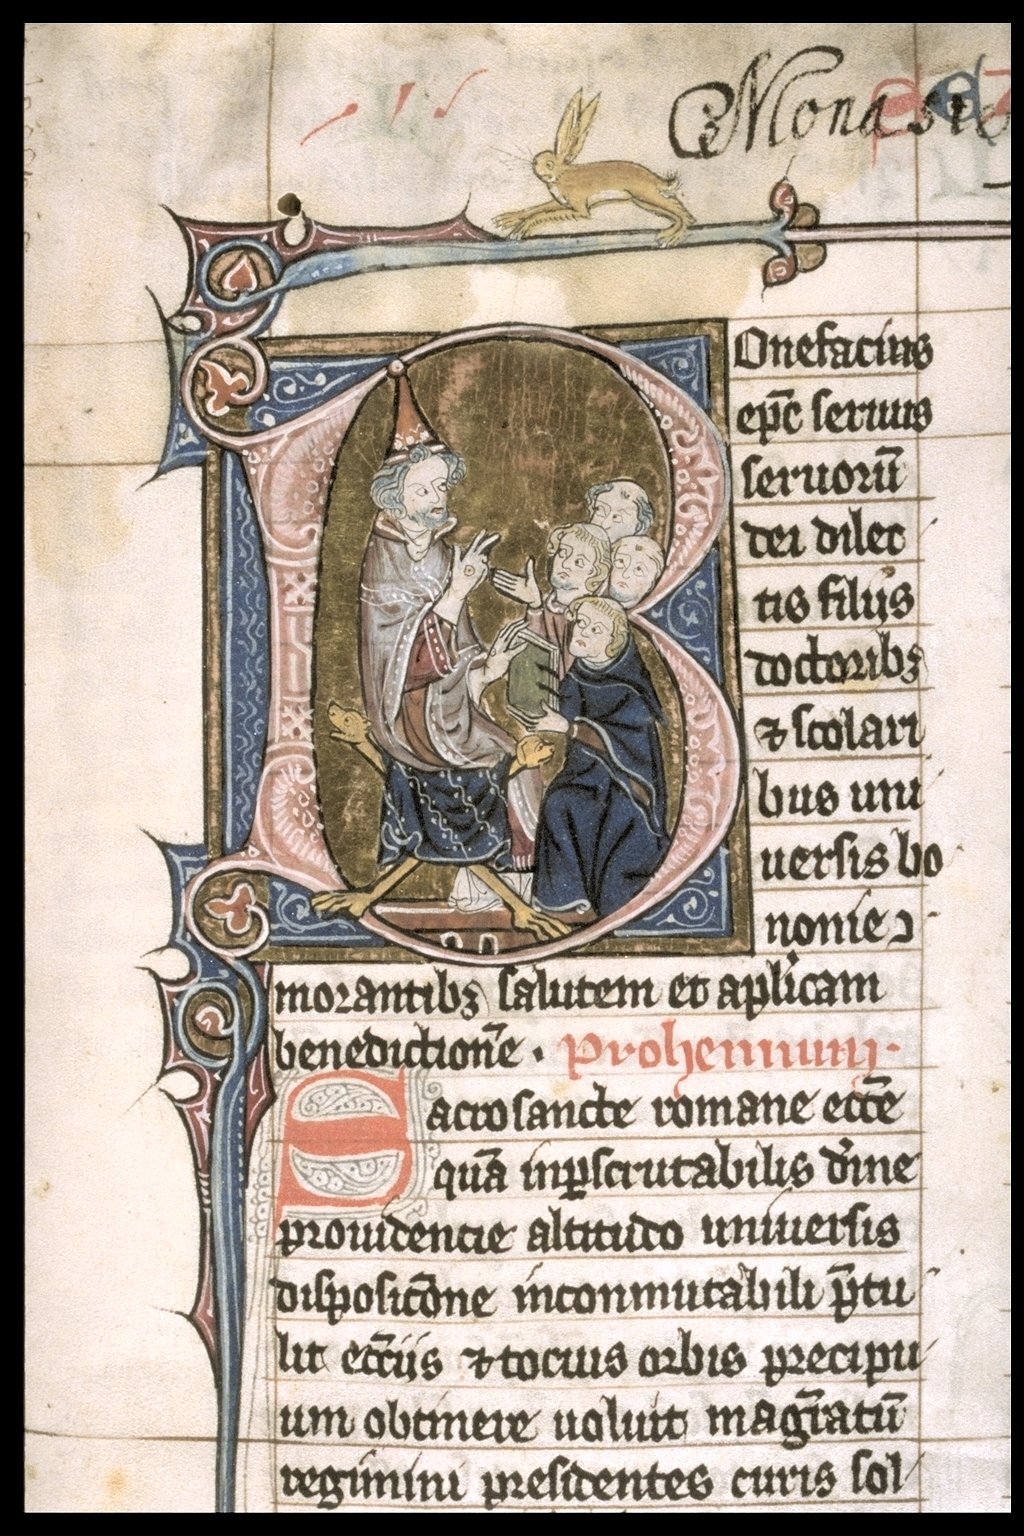 Monaste
Onefacius
ep̄c seruus
seruorū
dei dilec
tis filijs
doctoribꝫ
⁊ scolari
bus uni
uersis bo
nonie
morantibꝫ salutem et apl'icam
benedictionē. Prohemium.
Sacrosancte romane ecc̄e
quā inp̱scrutabilis d'ine
prouidencie altitudo uniuersis
disposic̄one inconmutabili p̄tu
lit ecc̄iis ⁊ tocius orbis precipu
um obtinere uoluit magr̄atū
regimini presidentes curis sol